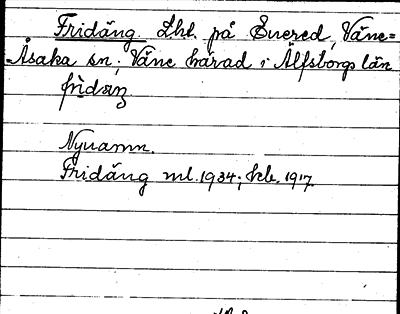 Fridäng Lht. på Euered, Väne=
Åsaka sn, Väne härad i Älfsborgs län
Nynamn.
Fridäng ml. 1934; kb. 1917